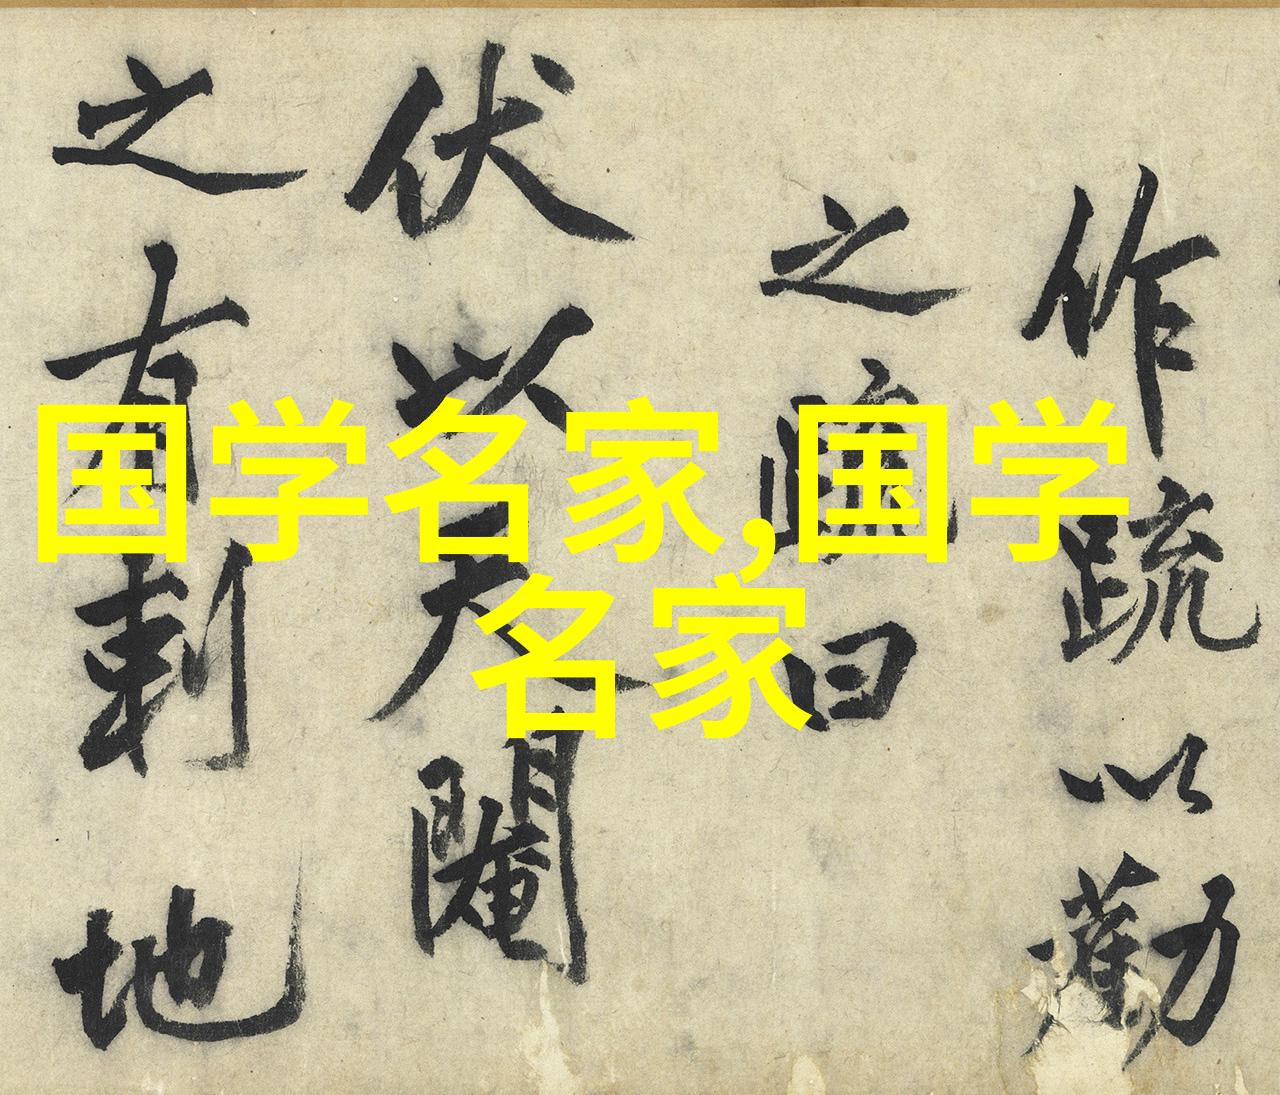 作疏以勸
之曰
伏以天閹
之有刺地
国学名家,国学
名家